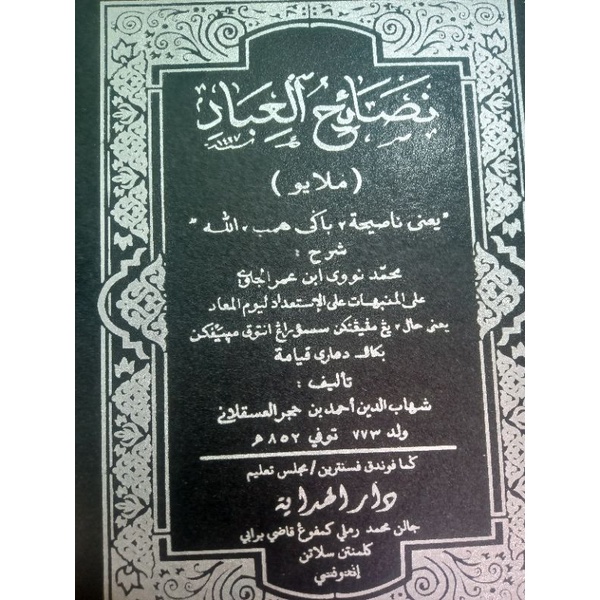 نصائح العباد
١٤٣٧
( ملايو )
"يعنى ناصيحة٢ باݢي همب٢ الله"
شرح :
محمّد نووى ابن عمر الجاوي
على المنبهات على الإستعداد ليوم المعاد
يعنى حال٢ يڠ مڠيڠتكن سسؤراڠ انتوق مپيڤكن
بكال دهاري قيامة
تأليف :
شهاب الدين أحمد بن حجر العسقلاني
ولد ٧٧٣ توفي ٨٥٢ ھ
كڤا ڤوندق ڤسنترين / مجلس تعليم
دار الهداية
جالن محمد رملي كمڤوڠ قاضي برابي
كلمنتن سلاتن